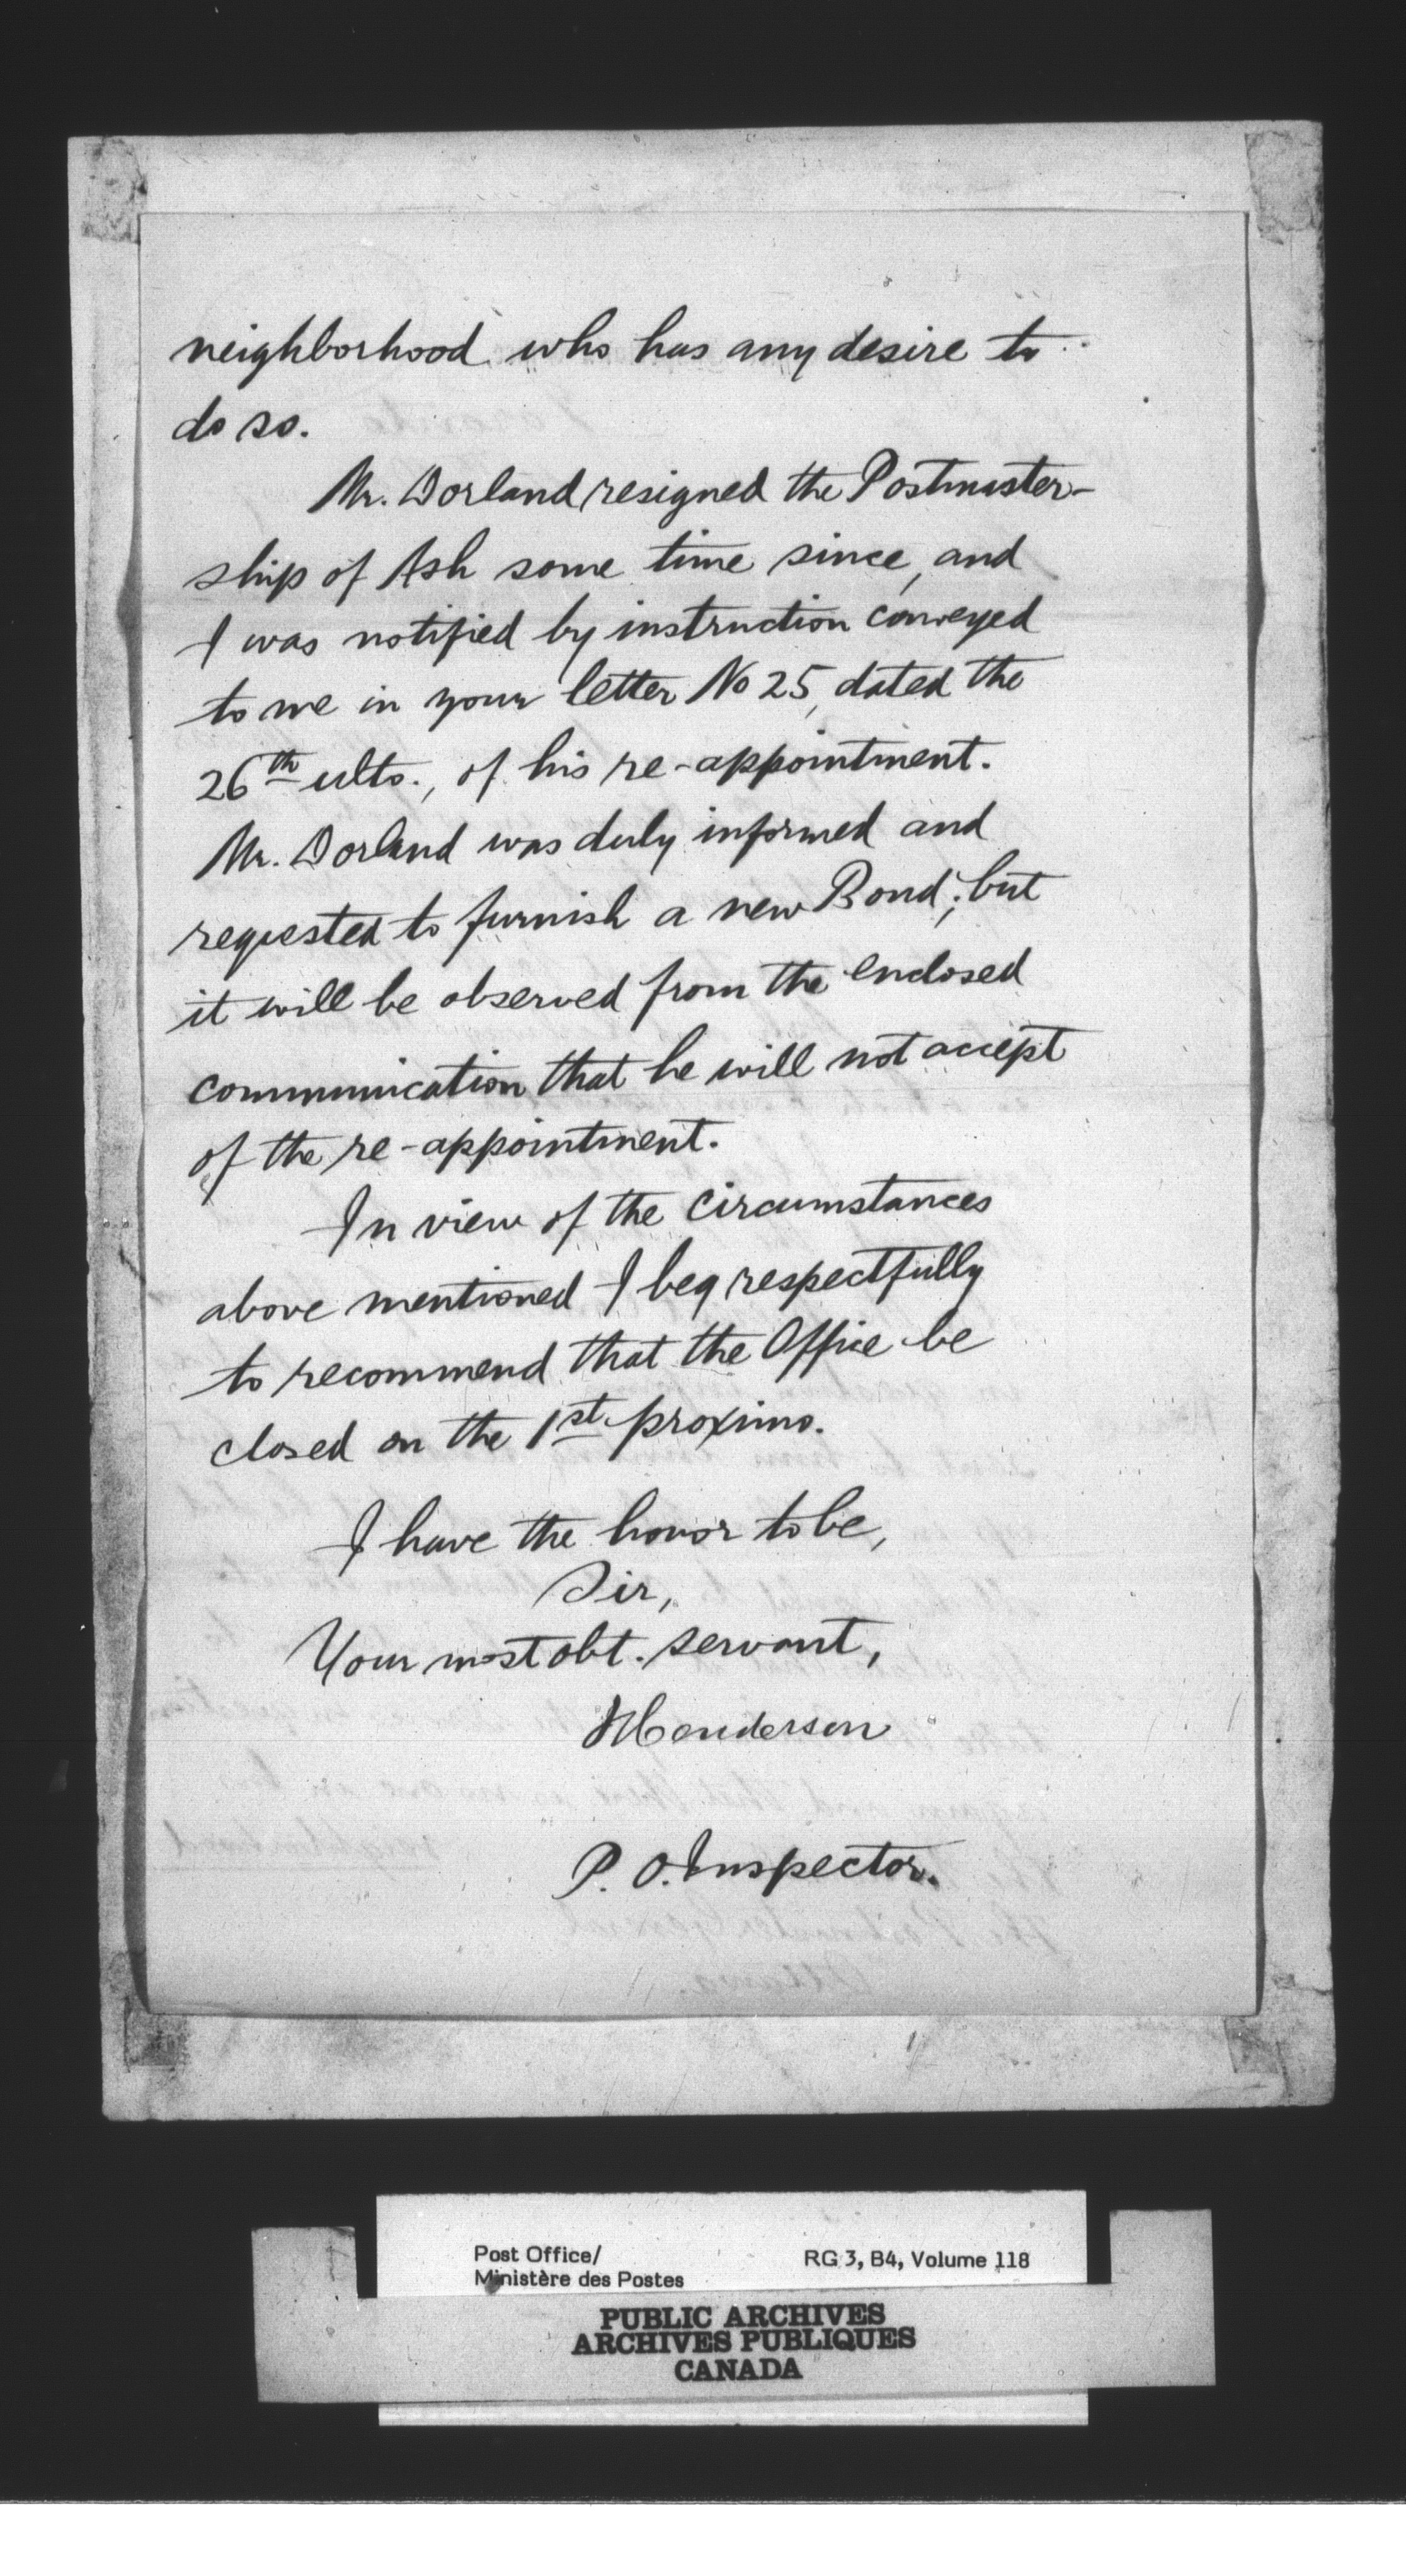 neighborhood who has any desire to
do so.
Mr. Dorland resigned the Postmaster-
ship of Ash some time since, and
I was notified by instruction conveyed
to me in your letter No 25, dated the
26th ulto., of his re-appointment.
Mr. Dorland was duly informed and
requested to furnish a new Bond; but
it will be observed from the enclosed
communication that he will not accept
of the re-appointment.
In view of the circumstances
above mentioned I beg respectfully
to recommend that the Office be
closed on the 1st proximo.
I have the honor to be,
Sir,
Your most obt. servant,
Henderson
P. O. Inspector.
Post Office/
Ministère des Postes
RG 3, B4, Volume 118
PUBLIC ARCHIVES
ARCHIVES PUBLIQUES
CANADA